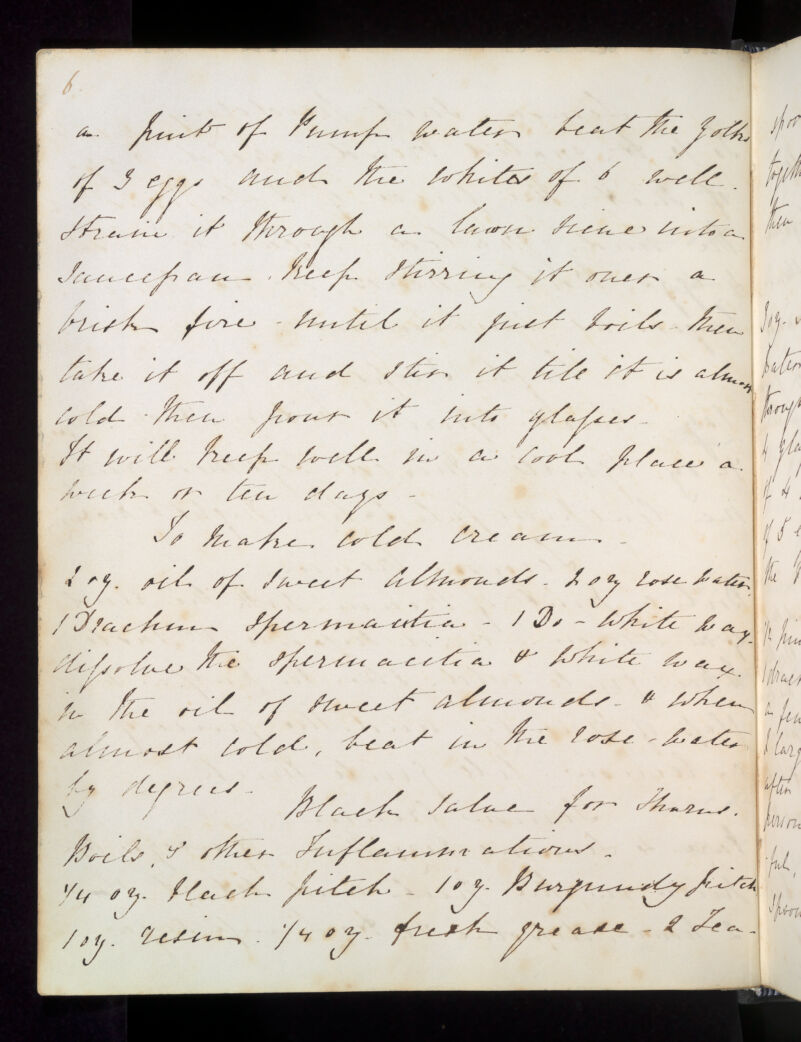 6
a pint of Pump water beat the yolks
of 3 eggs and the whites of 6 well.
strain it through a lawn sieve into a
saucepan. keep stirring it over a
brisk fire - until it just boils - then
take it off and stir it till it is almost
cold - then pour it into glasses -
It will keep well in a cool place a
week or ten days -
To make cold cream -
2 oz. oil of sweet almonds - 2 oz rose water.
1 Drachm spermacitia - 1 Do - white wax -
dissolve the spermacitia & white wax
in the oil of sweet almonds - & when
almost cold, beat in the rose-water
by degrees -
Black salve for Thorns.
Boils, & other Inflammations -
1/4 oz. black pitch - 1 oz. Burgundy pitch
1 oz. resin. 1/4 oz. fresh grease - 2 Tea-